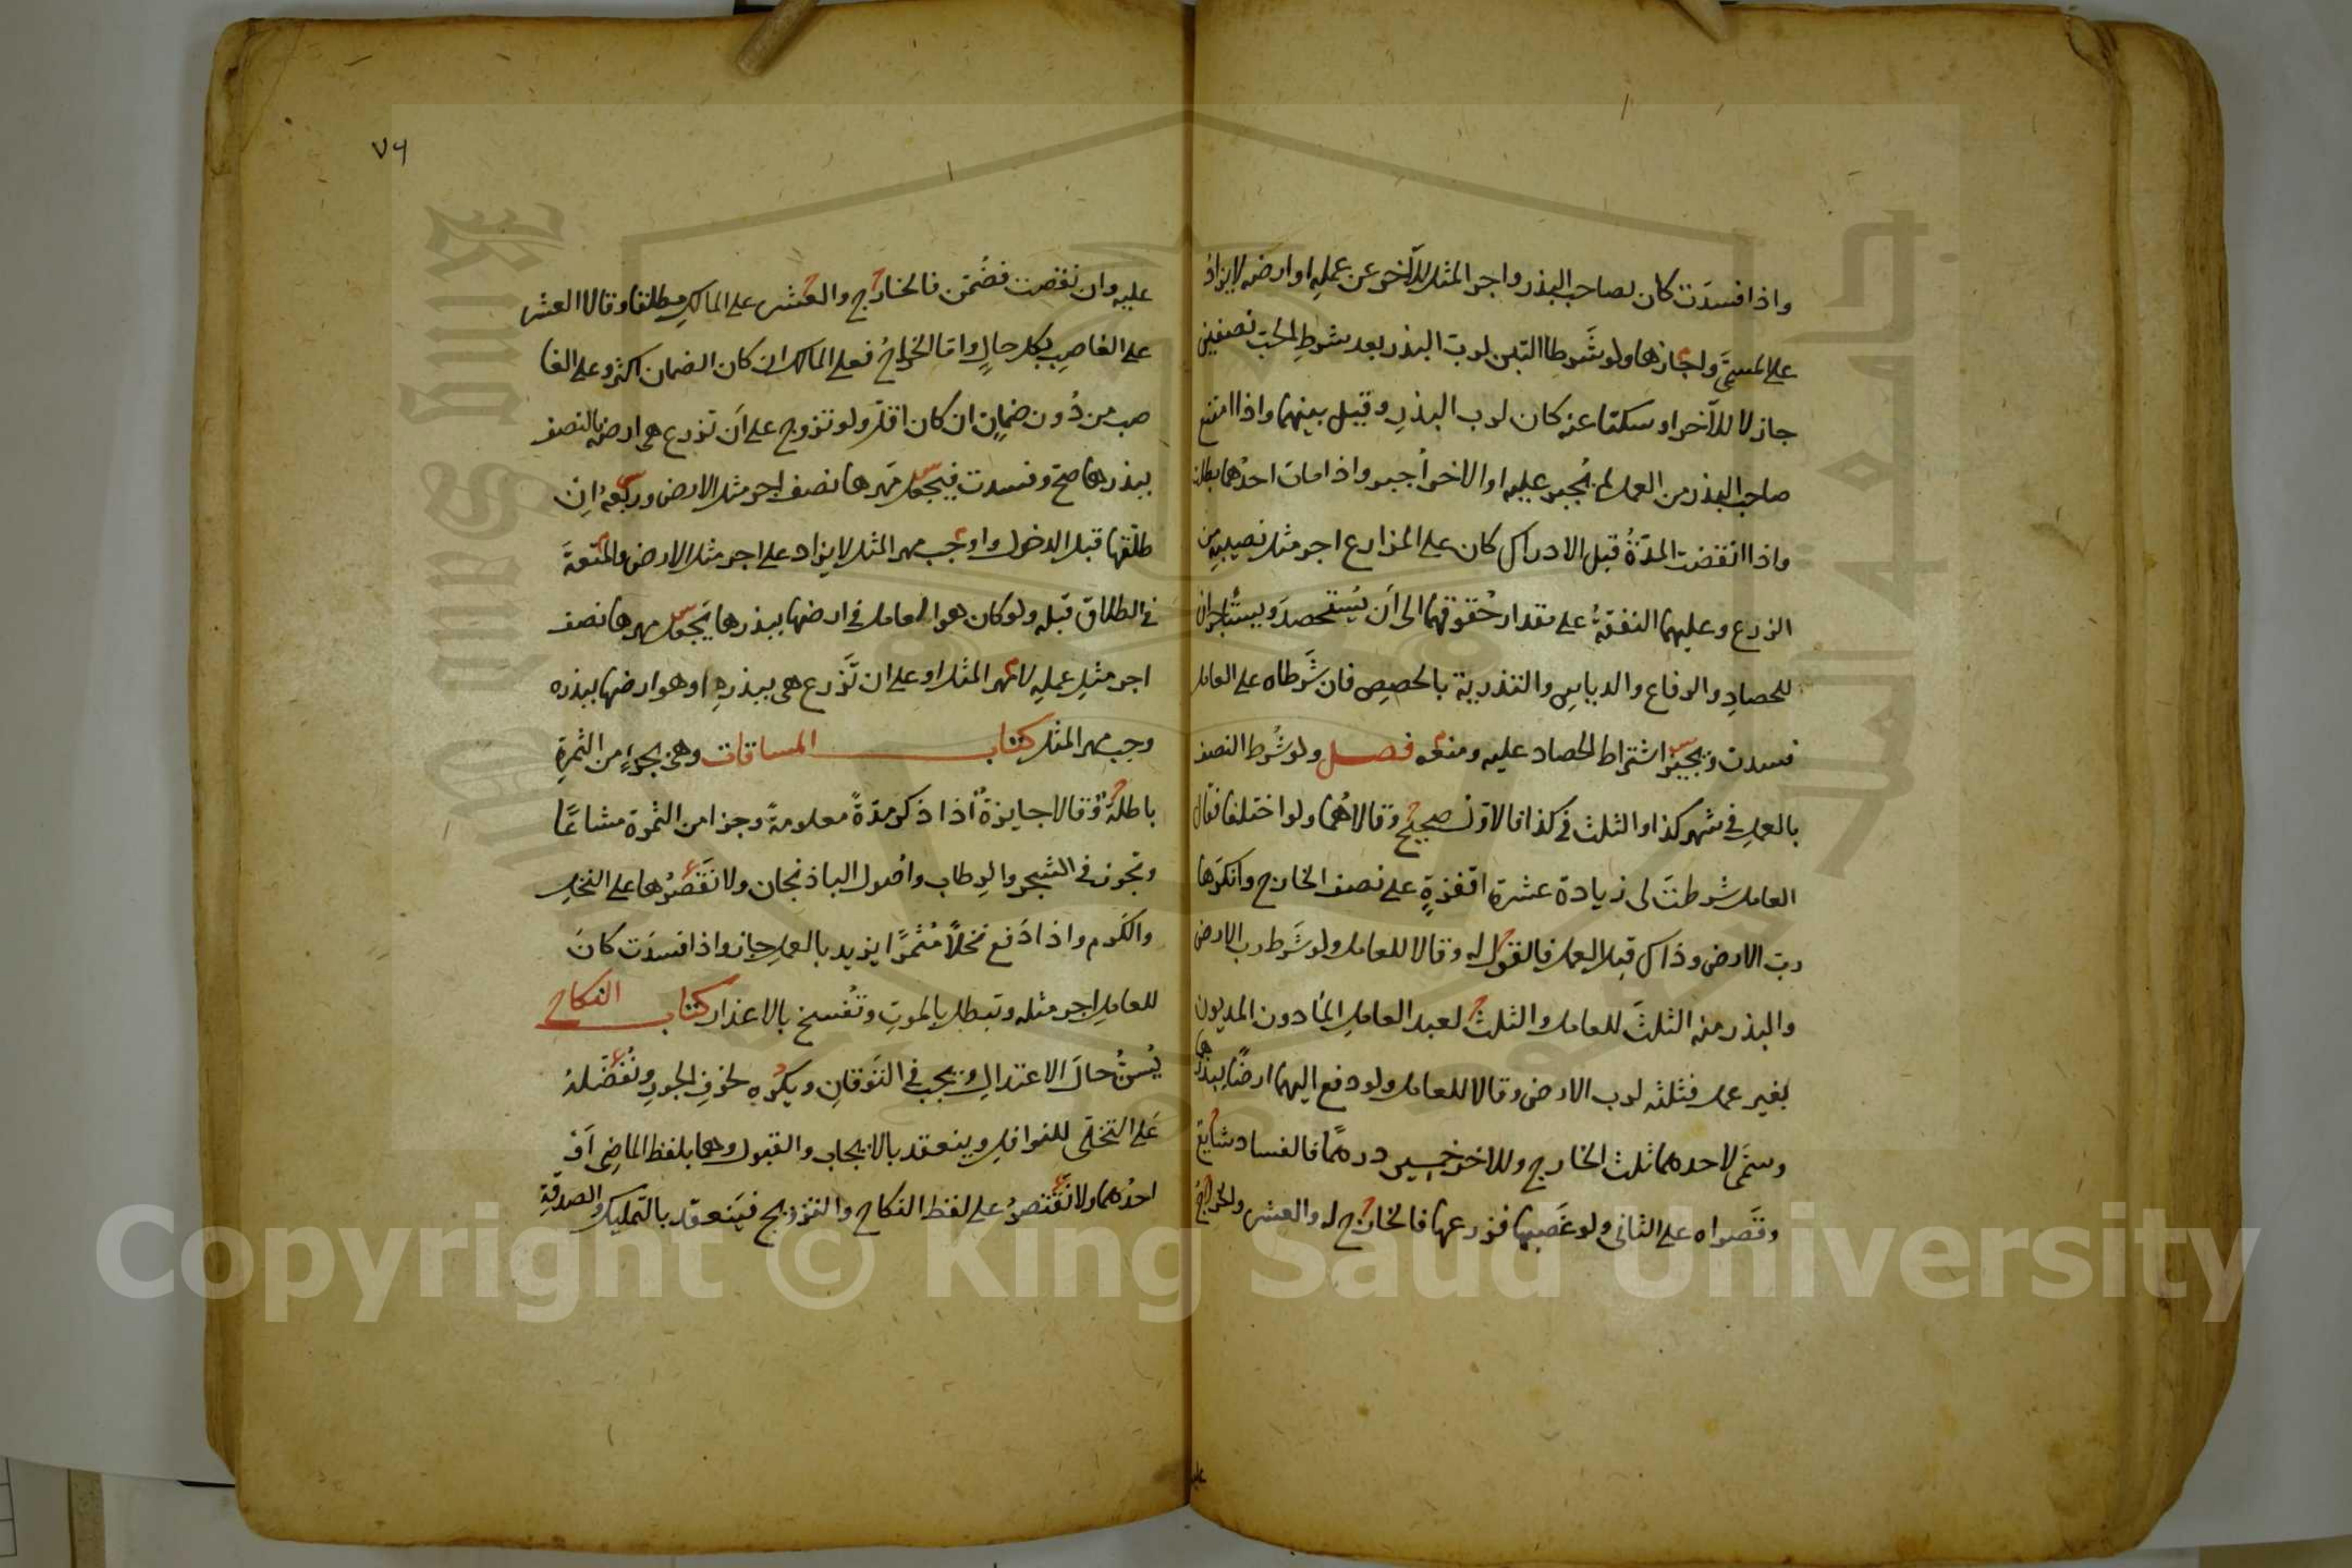 واذا فسدت كان لصاحب البذر واجر المثل للآخر عن عمله او ارضه لا يزاد
على المسمى واجازها ولو شرطا التبن لرب البذر بعد شرط الحب نصفين
جاز لا للآخر او سكتا عنه كان لرب البذر وقيل بينهما واذا امتنع
صاحب البذر من العمل لم يُجبر عليه او الاخر اُجبر واذا مات احدهما بطلت
واذا انقضت المدّةُ قبل الادراك كان على المزارع اجر مثل نصيبه من
الزرع وعليهما النفقةُ على مقدار حُقوقهما الى اَن يُستحصد ويستأجران
للحصاد والرفاع والدياس والتذرية بالحصص فان شَرَطاه على العامل
فسدت ويجيز اشتراط الحصاد عليه ومنعه فصل ولو شُرط النصف
بالعمل في شهر كذا والثلث في كذا فالاوّل صحيح وقالا هُما ولو اختلفا فقال
العامل شرطتَ لى زيادة عشرة اقفزةٍ على نصف الخارج وانكرها
ربّ الارض وذاك قبل العمل فالقول له وقالا للعامل ولو شَرَط رب الارض
والبذر منه الثلثَ للعامل والثلث لعبد العامل المأذون المديون
بغير عمل فثلثه لرب الارض وقالا للعامل ولو دفع اليهما ارضًا ببذرها
وسمّى لاحدهما ثلث الخارج وللاخر خمسين درهمًا فالفساد شايع
وقَصَراه على الثانى ولو غصبها فزرعها فالخارج له والعشر والخراج
عليه
٧٦
عليه وان نقصت فضُمّن فالخارج والعشر على المالك مطلقا وقالا العشر
على الغاصب بكل حالٍ وامّا الخراجُ فعلى المالك ان كان الضمان اكثر وعلى الغا
صب من دُون ضمان ان كان اقلّ ولو تزوج على اَن تزرع هى ارضه بالنصف
ببذرها صح وفسدت فيجعل مَهرها نصف اجر مثل الارض وربعه اِن
طلقها قبل الدخول واوجب مهر المثل لا يزاد على اجر مثل الارض والمتعةَ
في الطلاق قبله ولو كان هو العامل في ارضها ببذرها يَجعل مهرها نصف
اجر مثلِ عملِه لا مهر المثل او على ان تَزرع هى ببذرهِ او هو ارضها ببذره
وجب مهر المثل كتاب المساقات وهى بجزءٍ من الثمرةِ
باطلةٌ وقالا جايزةٌ اذا ذكر مدّةً معلومةً وجزا من الثمرة مشاعًا
وتجوز في الشجر والرطاب واصول الباذنجان ولا نَقصُرُها على النخل
والكرم واذا دَفع نخلاً مُثمرًا يزيد بالعمل جاز واذا فسدَت كانَ
للعامل اجر مثله وتبطل بالموتِ وتُفسخ بالاعذار كتاب النكاح
يُسنّ حالَ الاعتدال ويجب في التَوَقانِ ويُكره لخوفِ الجورِ ونُفَضّلهُ
عَلى التخلّى للنوافل وينعقد بالايجاب والقبول وهما بلفظ الماضِى اَوْ
احدُهما ولا نَقتَصرُ على لفظ النكاح والتزويج فيَنعقد بالتمليك والصدقةِ